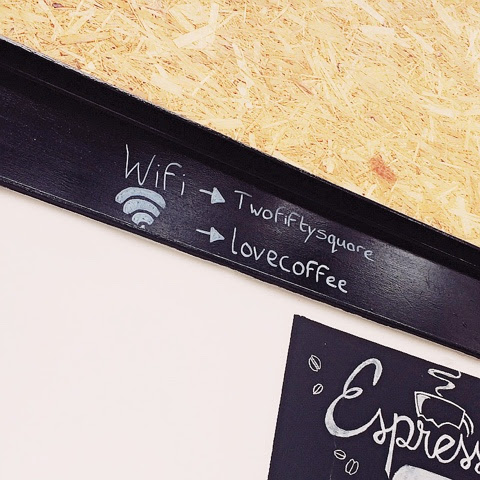 Wifi → Twofiftysquare
→ lovecoffee
Espress